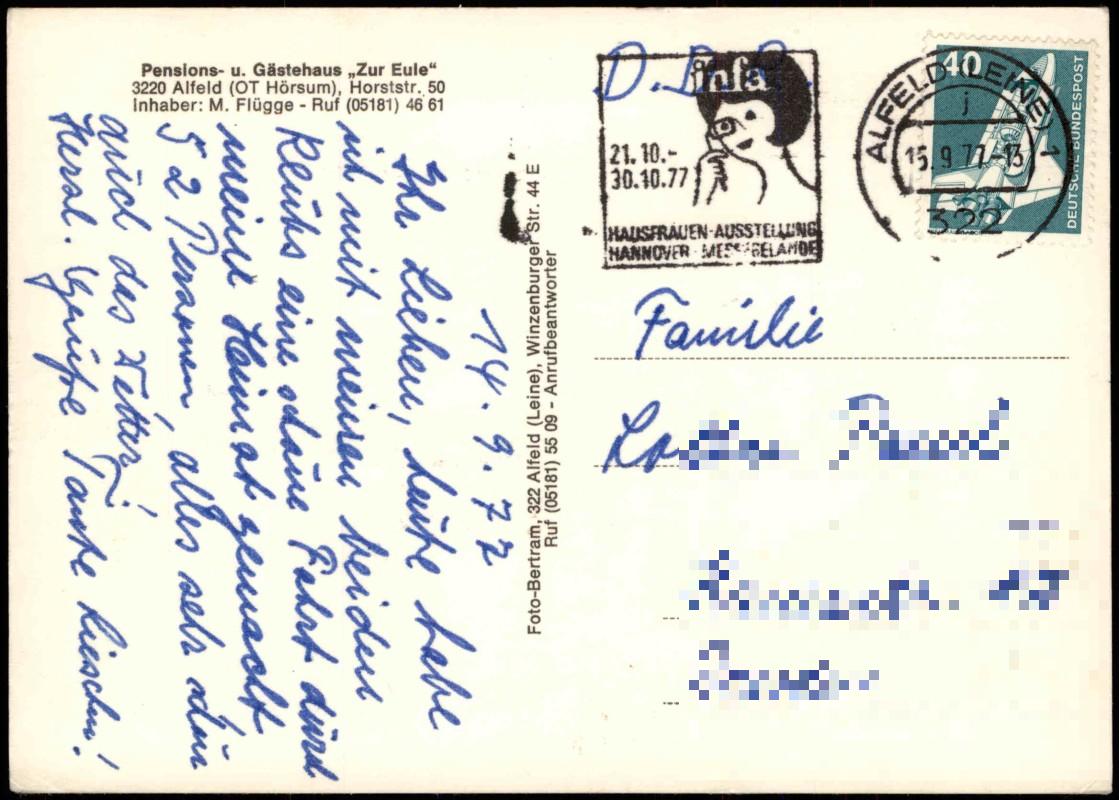 Pensions- u. Gästehaus „Zur Eule“
3220 Alfeld (OT Hörsum), Horststr. 50
Inhaber: M. Flügge - Ruf (05181) 46 61
14. 9. 77
Ihr Lieben, heute habe
ich mit meinen beiden
eine schöne Fahrt durch
meine Heimat gemacht
52 Personen, alles sehr schön
auch das Wetter!
Herzl. Grüße Tante Lieschen!
Foto-Bertram, 322 Alfeld (Leine), Winzenburger Str. 44 E
Ruf (05181) 55 09 - Anrufbeantworter
D.D.R.
infa
21.10.-
30.10.77
HAUSFRAUEN-AUSSTELLUNG
HANNOVER-MESSEGELÄNDE
ALFELD (LEINE) 1
j
15.9.77-13
322
40
DEUTSCHE BUNDESPOST
Familie